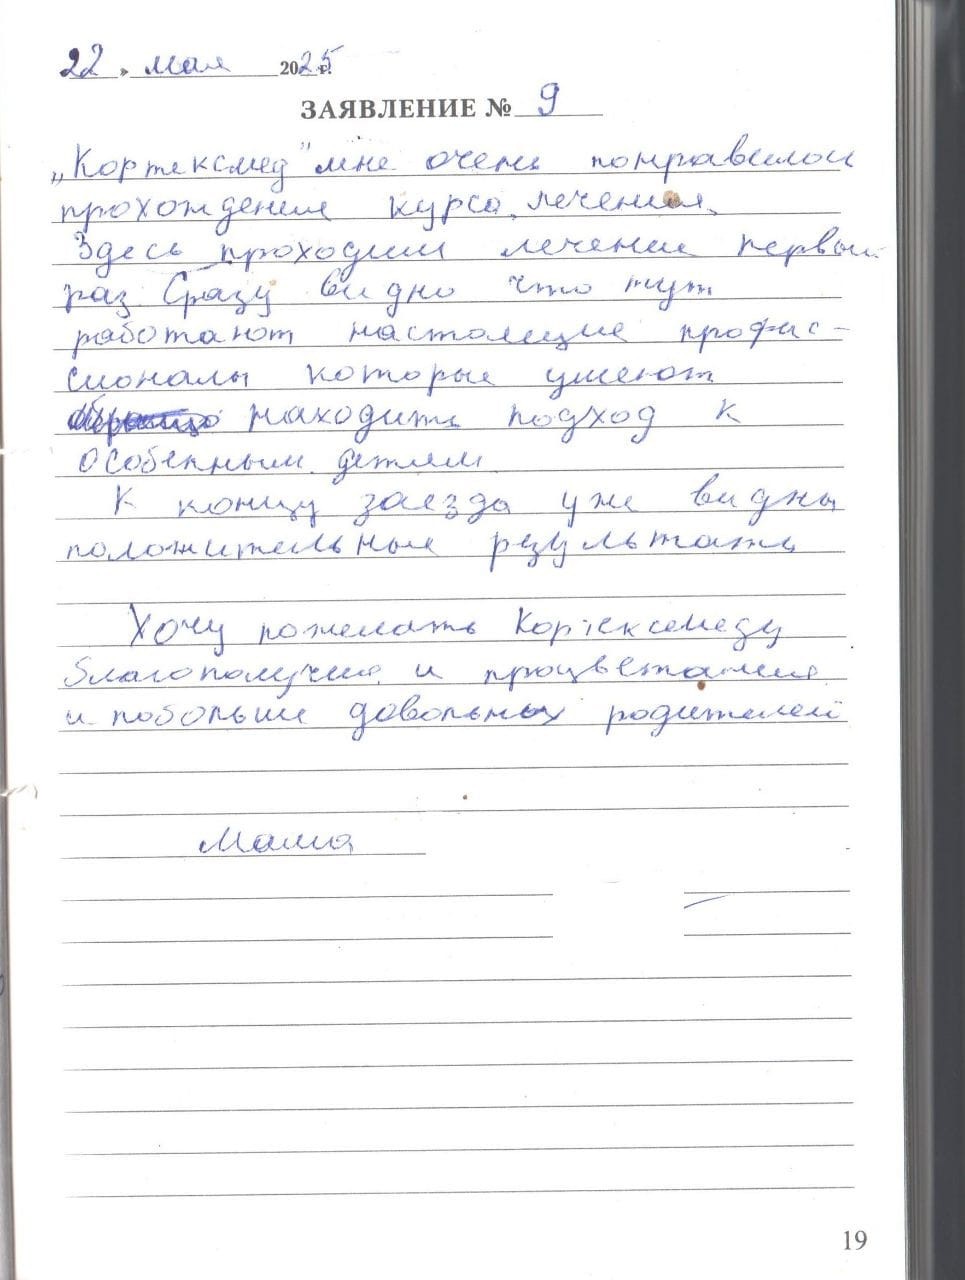 22 » мая 2025 г.
ЗАЯВЛЕНИЕ № 9
„Кортексмед" мне очень понравилось
прохождение курса лечения.
Здесь проходим лечение первый
раз. Сразу видно что тут
работают настоящие профес-
сионалы которые умеют
находить подход к
особенным детям
К концу заезда уже видны
положительные результаты
Хочу пожелать Кортексмеду
благополучия и процветания
и побольше довольных родителей
Мама
19